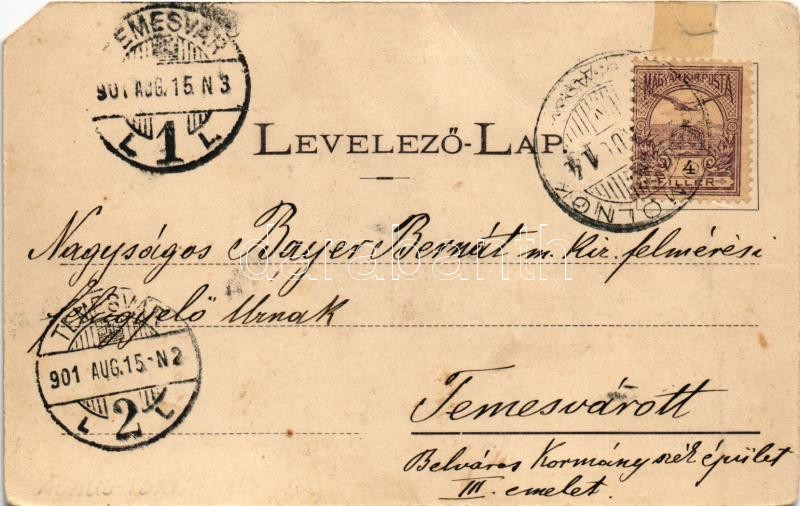 TEMESVÁR
901 AUG. 15. N 3
L 1 L
LEVELEZŐ-LAP.
SZOLNOK
AUG 14
MAGYAR KIR. POSTA
4
FILLÉR
Nagyságos Bayer Bernát m. kir. felmérési
felügyelő Urnak
darabanth
TEMESVÁR
901 AUG. 15. N 2
L 2 L
Temesvárott
Belváros Kormányszéképület
III. emelet.